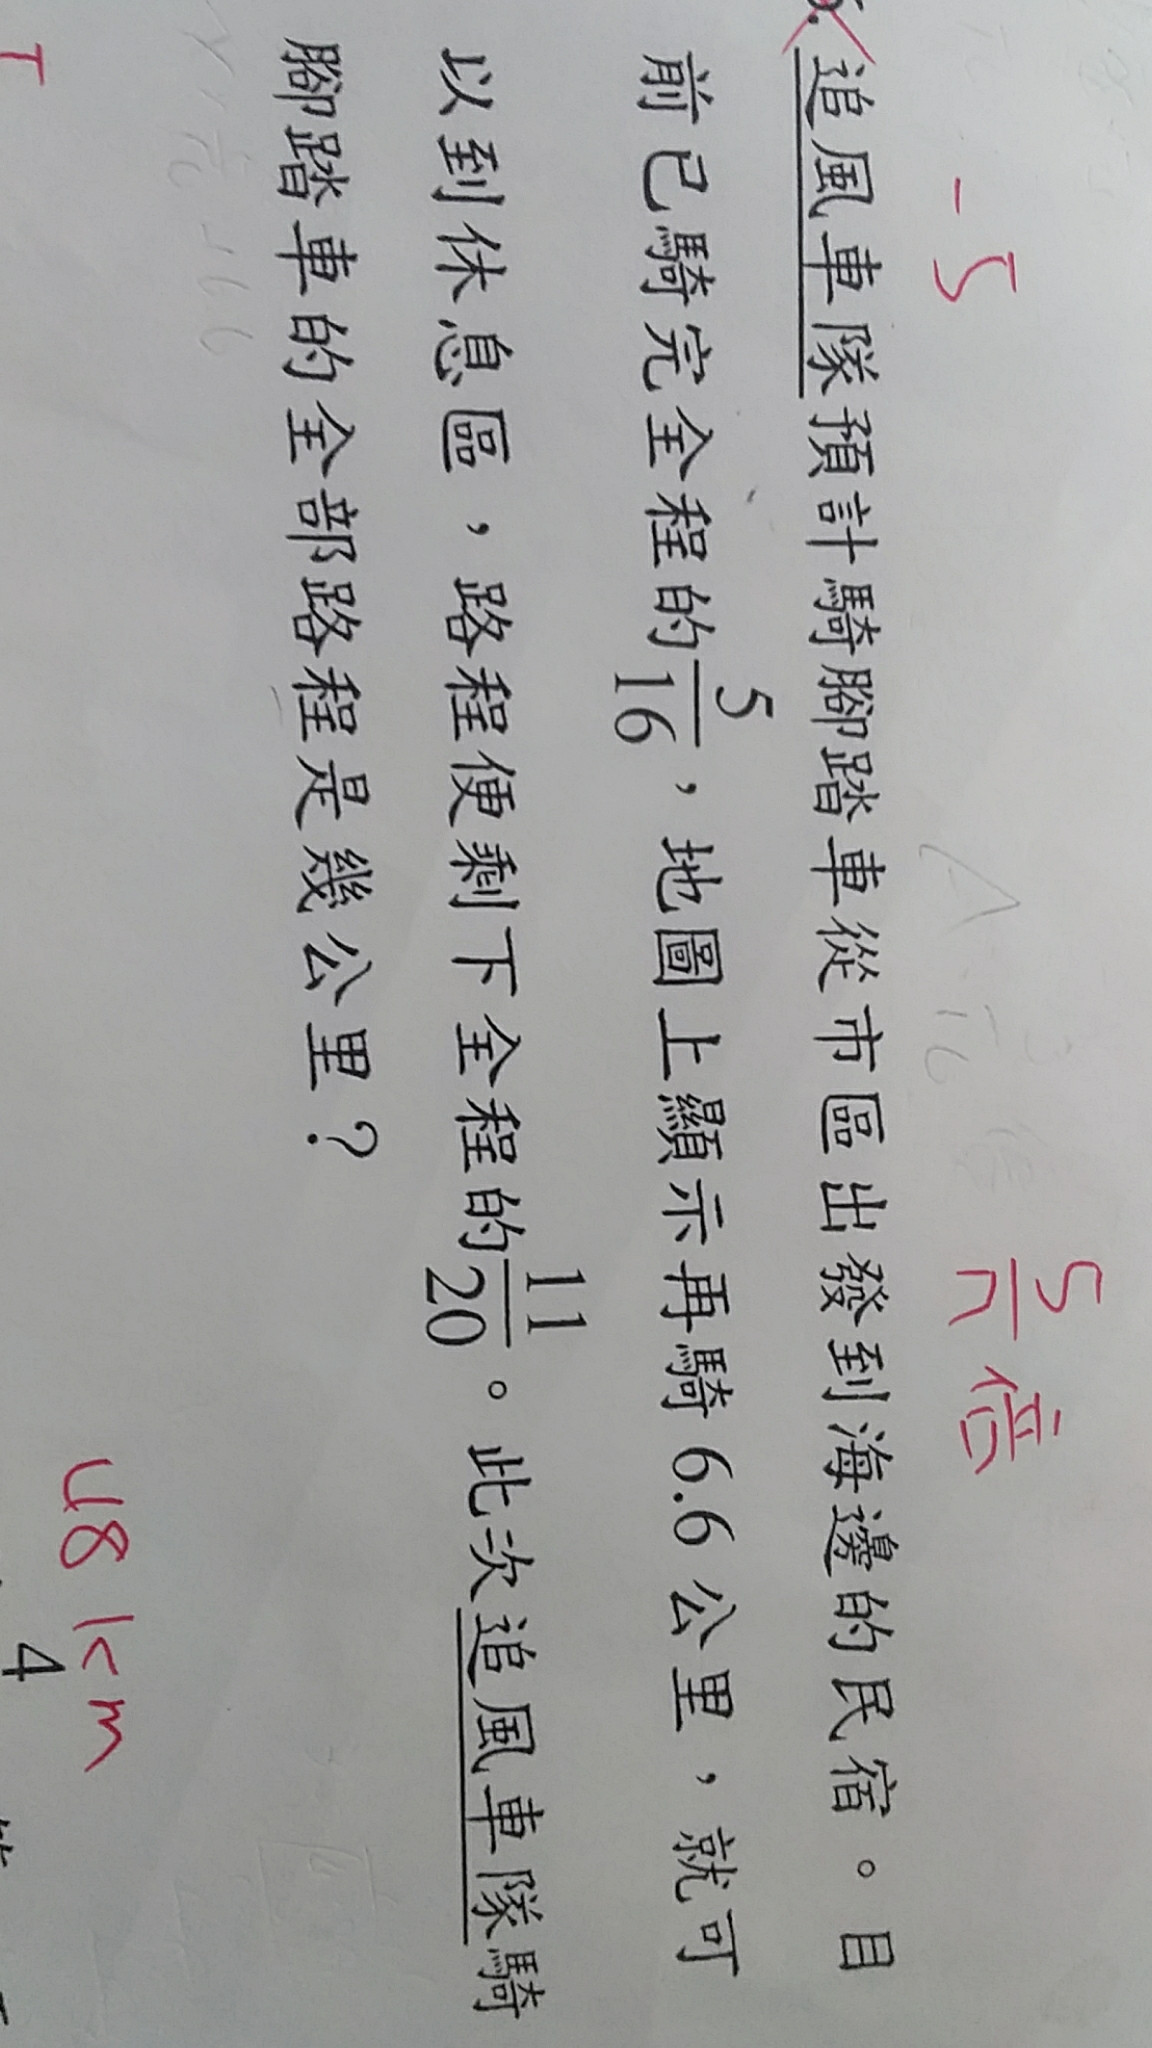 追風車隊預計騎腳踏車從市區出發到海邊的民宿。目
前已騎完全程的5/16，地圖上顯示再騎6.6公里，就可
以到休息區，路程便剩下全程的11/20。此次追風車隊騎
腳踏車的全部路程是幾公里？
48 km
4